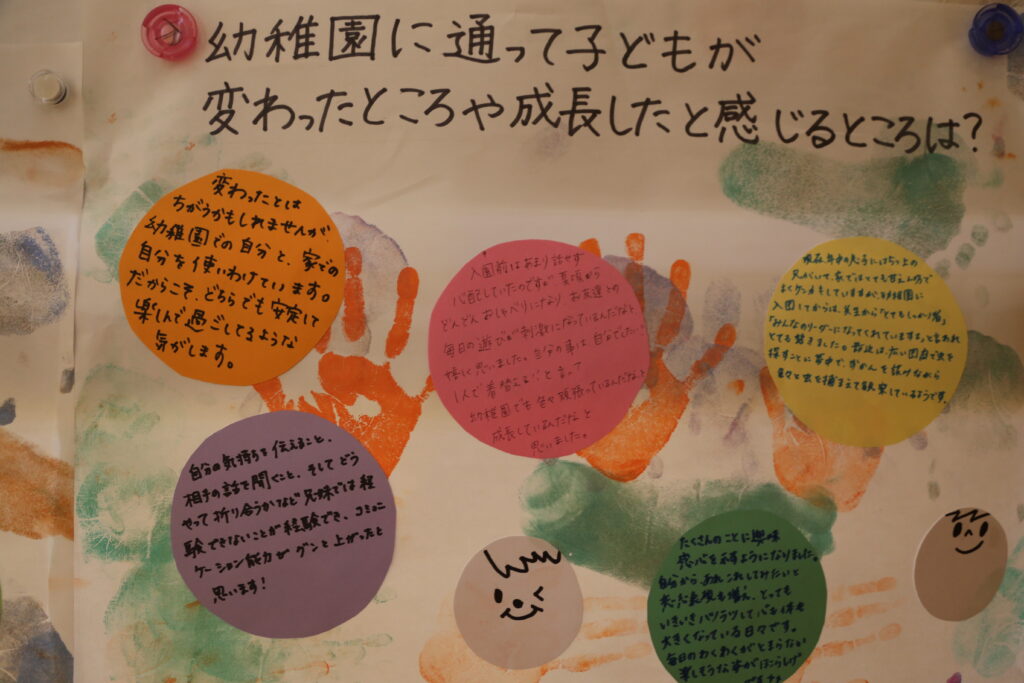 幼稚園に通って子どもが
変わったところや成長したと感じるところは?
変わったとは
ちがうかもしれませんが、
幼稚園での自分と、家での
自分を使いわけています。
だからこそ、どちらでも安定して
楽しんで過ごしてるような
気がします。
入園前はあまり話せず
心配していたのですが、夏頃から
どんどんおしゃべりになり、お友達との
毎日の遊びが刺激になっているんだなと
嬉しく思いました。自分の事は自分でしたい!
1人で着替える!と言って
幼稚園でも色々頑張っているんだなと
成長しているんだなと
思いました。
現在年中の息子には5つ上の
兄がいて、家ではとても甘えん坊で
よくケンカもしていますが、幼稚園に
入園してからは、先生から「とてもしっかり者」
「みんなのリーダーになってくれています。」と言われ
とても驚きました。最近は広い園庭で虫を
探すことに夢中で、ずかんを抜けながら
色々と虫を捕まえて観察しているようです。
自分の気持ちを伝えること、
相手の話を聞くこと、そしてどう
やって折り合うかなど兄妹では経
験できないことが経験でき、コミュニ
ケーション能力がグンと上がったと
思います!
たくさんのことに興味
関心を示すようになりました。
自分からあれこれしてみたいと
いきいきハツラツとして心も体も
大きくなっている日々です。
毎日のわくわくがとまらない
楽しそうな姿がほほえましい